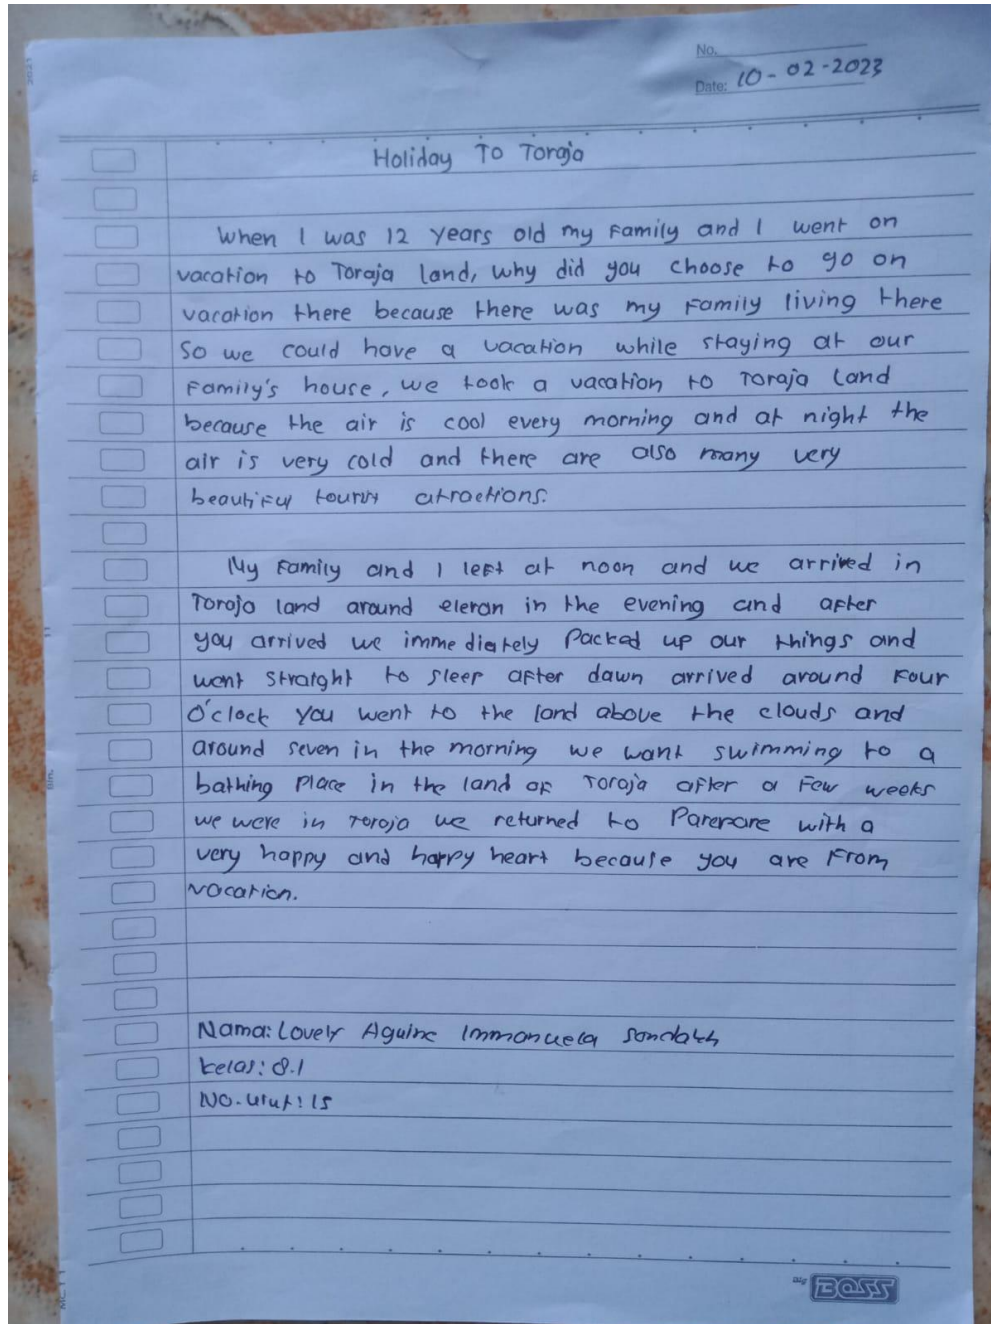 No.
Date: 10-02-2023
Holiday To Toraja
When I was 12 years old my Family and I went on
vacation to Toraja land, why did you choose to go on
vacation there because there was my Family living there
So we could have a vacation while staying at our
Family's house, we took a vacation to Toraja Land
because the air is cool every morning and at night the
air is very cold and there are also many very
beautiful tourist atractions.
My Family and I left at noon and we arrived in
Toraja land around eleran in the evening and after
you arrived we immediately Packed up our things and
went straight to sleep after dawn arrived around Four
O'clock you went to the land above the clouds and
around seven in the morning we want swimming to a
bathing Place in the land of Toraja after a Few weeks
we were in Toraja we returned to Parepare with a
very happy and happy heart because you are From
vacation.
Nama: Lovely Aguine Immanuela Sondakh
kelas: 8.1
No. Urut: 15
BOSS